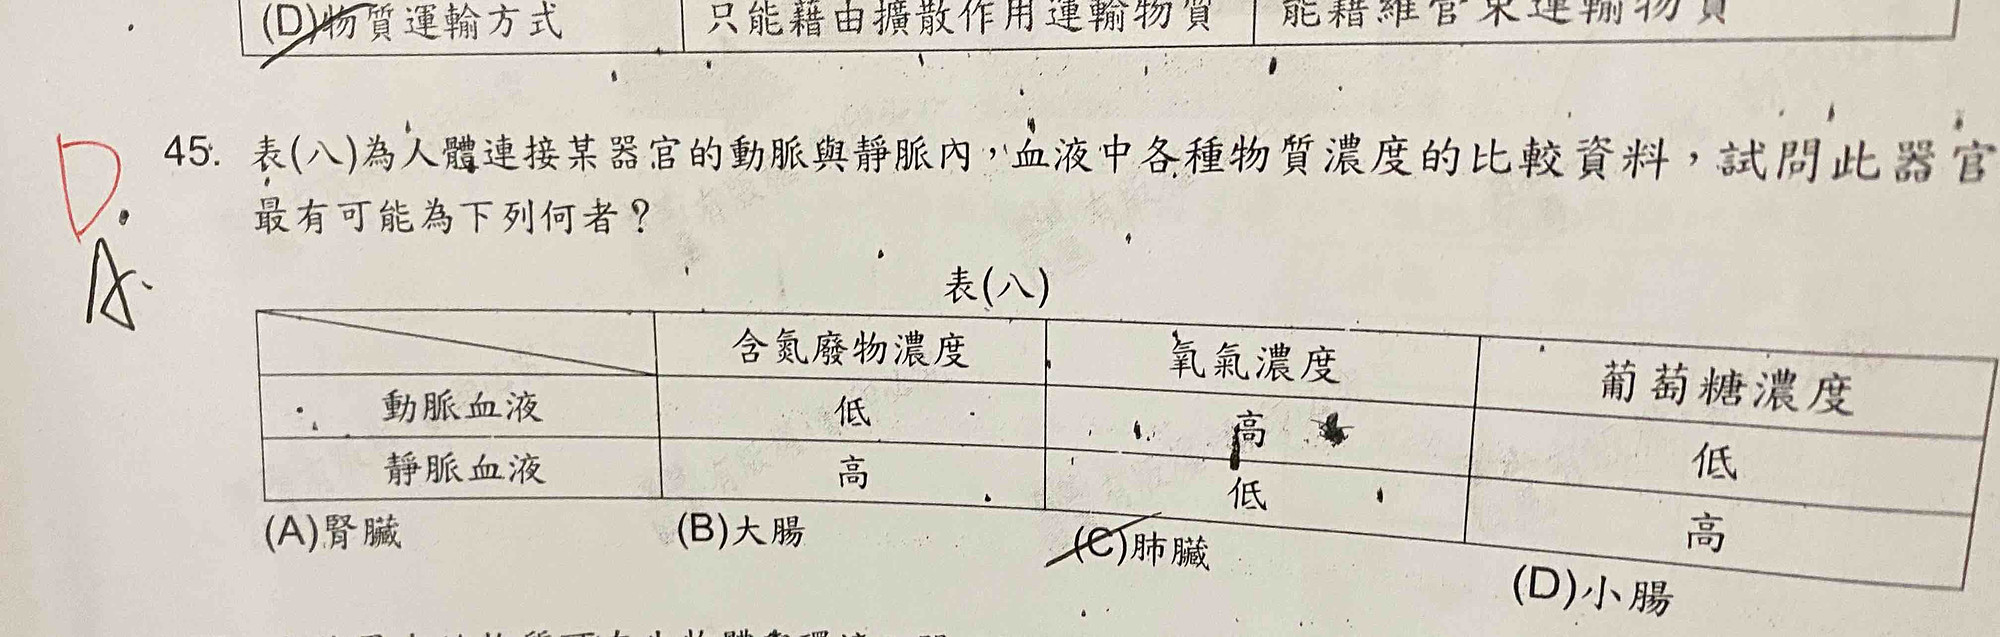 (D)物質運輸方式 只能藉由擴散作用運輸物質 能藉維管束運輸物質
D.
45. 表(八)為人體連接某器官的動脈與靜脈內，血液中各種物質濃度的比較資料，試問此器官
最有可能為下列何者？
A.
表(八)
含氮廢物濃度 氧氣濃度 葡萄糖濃度
動脈血液 低 高 低
靜脈血液 高 低 高
(A)腎臟 (B)大腸 (C)肺臟 (D)小腸